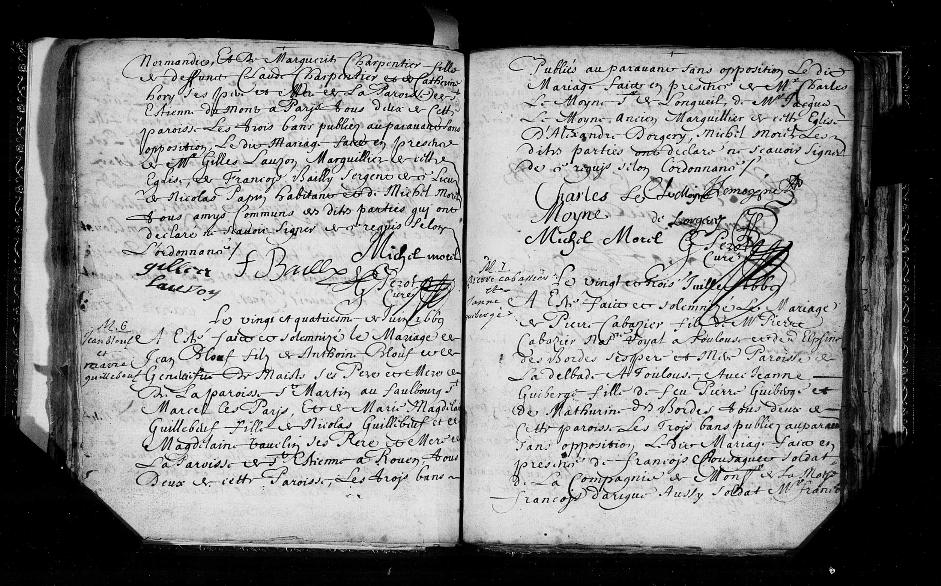 Normandie, Et De Marguerit Charpentier fille
de deffunct Claude Charpentier et de Catherine
hory ses pere et Mere de La Paroisse de St
Estienne du mont a Paris tous deux de Cette
paroisse Les trois bans publiez auparavant sans
opposition, Le dit Mariage faict en presence
de Mr Gilles Lauzon Marguillier de cette
Eglise, de François Bailly Sergent de ce lieu
de Nicolas habitant et de Michel Morel
tous amys Communs des dits parties qui ont
declaré ne scavoir signer de ce requis selon
L'ordonnance /
gilles Lauson
f. Bailly
Michel moreil
Perot
Curé
M. 6
Jean blouf
et
marie
guillebouf
Le vingt et quatriesme de Juin 1669
A Esté faict et solemnizé le Mariage de
Jean Blouf fils de Anthoine Blouf et de
Genevieve des Maists ses Pere et Mere
De La paroisse St Martin au faulbourg St
Marcel Les Paris, Et de Marie Magdelaine
Guillebœuf fille de Nicolas Guillebœuf et
Magdelaine Vauclin ses Pere et Mere de
La Paroisse de St Estienne a Rouen, tous
Deux de cette Paroisse, Les trois bans
Publiés auparavant sans opposition, Le dit
Mariage faict en presence de Mr Charles
Le Moyne Sr de Longueil, de Mr Jacque
Le Moyne Ancien Marguillier de cette Eglise
D'Alexandre Michel Moreil Les
dites parties ont declaré ne scavoir signer
de ce requis selon L'ordonnance /
Charles Le
Moyne
Le Moyne
de Longueil
Michel Morel
Perot
Curé
M. 7
Pierre Cabassier
et
Jeanne
guiberge
Le vingt et trois Juillet 1669
A Esté Faict et solemnizé Le Mariage
de Pierre Cabazier fils de Mr Pierre
Cabazier Royal a Toulouse et de
des Bordes ses pere et Mere, Paroisse de
La delbade A Toulouse, Avec Jeanne
Guiberge fille de feu Pierre Guiberge et
de Mathurine Desbordes tous deux de
Cette paroisse Les Trois bans publiez auparavant
sans opposition Le dit Mariage faict en
presence de francois soldat
de La Compagnie de Monsr de La Motte
francois Aussy soldat Mr francois